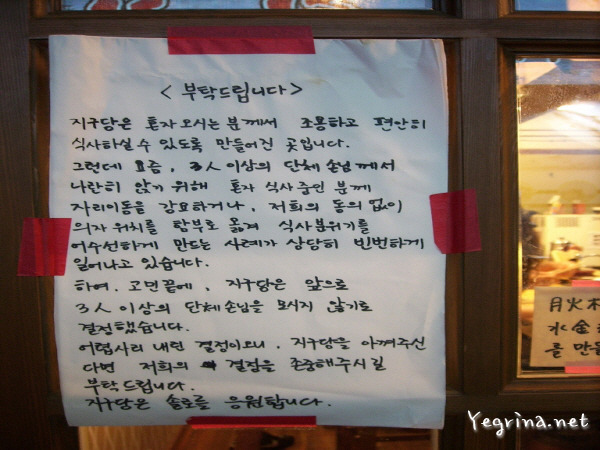 < 부탁드립니다 >
지구당은 혼자 오시는 분께서 조용하고 편안히
식사하실 수 있도록 만들어진 곳입니다.
그런데 요즘, 3人 이상의 단체 손님께서
나란히 앉기 위해 혼자 식사 중인 분께
자리이동을 강요하거나, 저희의 동의 없이
의자 위치를 함부로 옮겨 식사분위기를
어수선하게 만드는 사례가 상당히 빈번하게
일어나고 있습니다.
하여. 고민끝에, 지구당은 앞으로
3人 이상의 단체손님을 모시지 않기로
결정했습니다.
어렵사리 내린 결정이오니, 지구당을 아껴주신
다면 저희의 결정을 존중해주시길
부탁드립니다.
지구당은 솔로를 응원합니다.
月火木
水金
를 만들
Yegrina.net